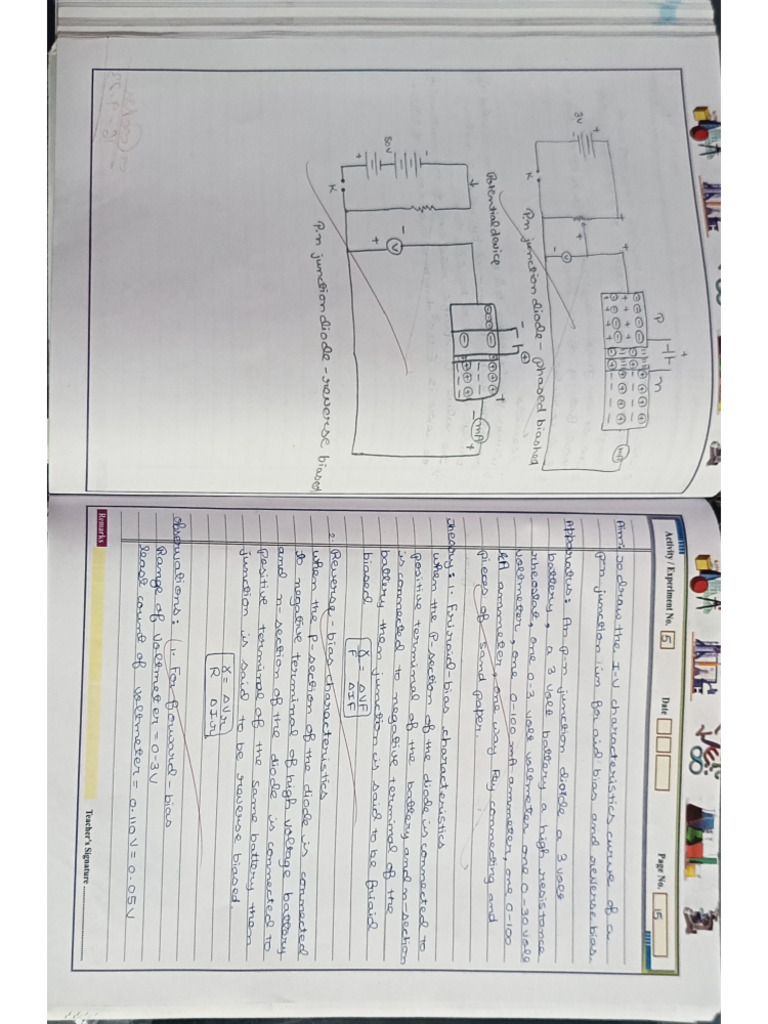 3V
+
-
K
P
n
mA
V
P.n junction diode - phased biashed
Potential device
80V
K
V
mA
P.n junction diode - reverse biased
Activity / Experiment No. 5
Date
Page No. 15
P.n junction ium for aid bias and reverse bias.
Apparatus: An p-n junction diode a 3 volt
battery, a 3 volt battery a high resistance
rheostat, one 0-3 volt voltmeter one 0-30 volt
voltmeter, one 0-100 mA ammeter, one 0-100
ammeter, one way key connecting and
pieces of sand paper.
characteristics
when the P-section of the diode is connected to
positive terminal of the battery and n-section
is connected to negative terminal of the
battery then junction is said to be
biased
γ = ΔVF
F ΔIF
2. Reverse - bias characteristics
when the P-section of the diode is connected
to negative terminal of high voltage battery
and n-section of the diode is connected to
positive terminal of the same battery then
junction is said to be reverse biased.
γ = ΔVr
R ΔIr
Observations: (1. For forward - bias
Range of voltmeter = 0-3V
least count of voltmeter = 0.110V = 0.05V
Remarks
Teacher's Signature